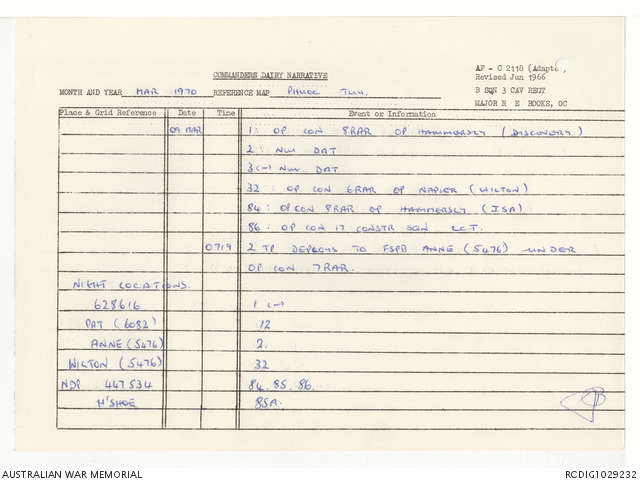 COMMANDERS DAIRY NARRATIVE
AF - C 2118 (Adapte
Revised Jun 1966
MONTH AND YEAR MAR 1970 REFERENCE MAP PHUOC TUY. B SQN 3 CAV REGT
MAJOR R E ROOKS, OC
Place & Grid Reference Date Time Event or Information
09 MAR 1: OP CON 8RAR OP HAMMERSLY (DISCOVERY)
2: NUI DAT
3(-) NUI DAT
32: OP CON 6RAR OP NAPIER (WILTON)
84: OP CON 8RAR OP HAMMERSLY (ISA)
86: OP CON 17 CONSTR SQN LCT.
0719 2 TP DEPLOYS TO FSPB ANNE (5476) UNDER
OP CON 7RAR.
NIGHT LOCATIONS.
628616 1 (-)
PAT (6082) 12
ANNE (5476) 2.
WILTON (5476) 32
NDP 447534 84, 85, 86.
H'SHOE 85A.
AUSTRALIAN WAR MEMORIAL RCDIG1029232